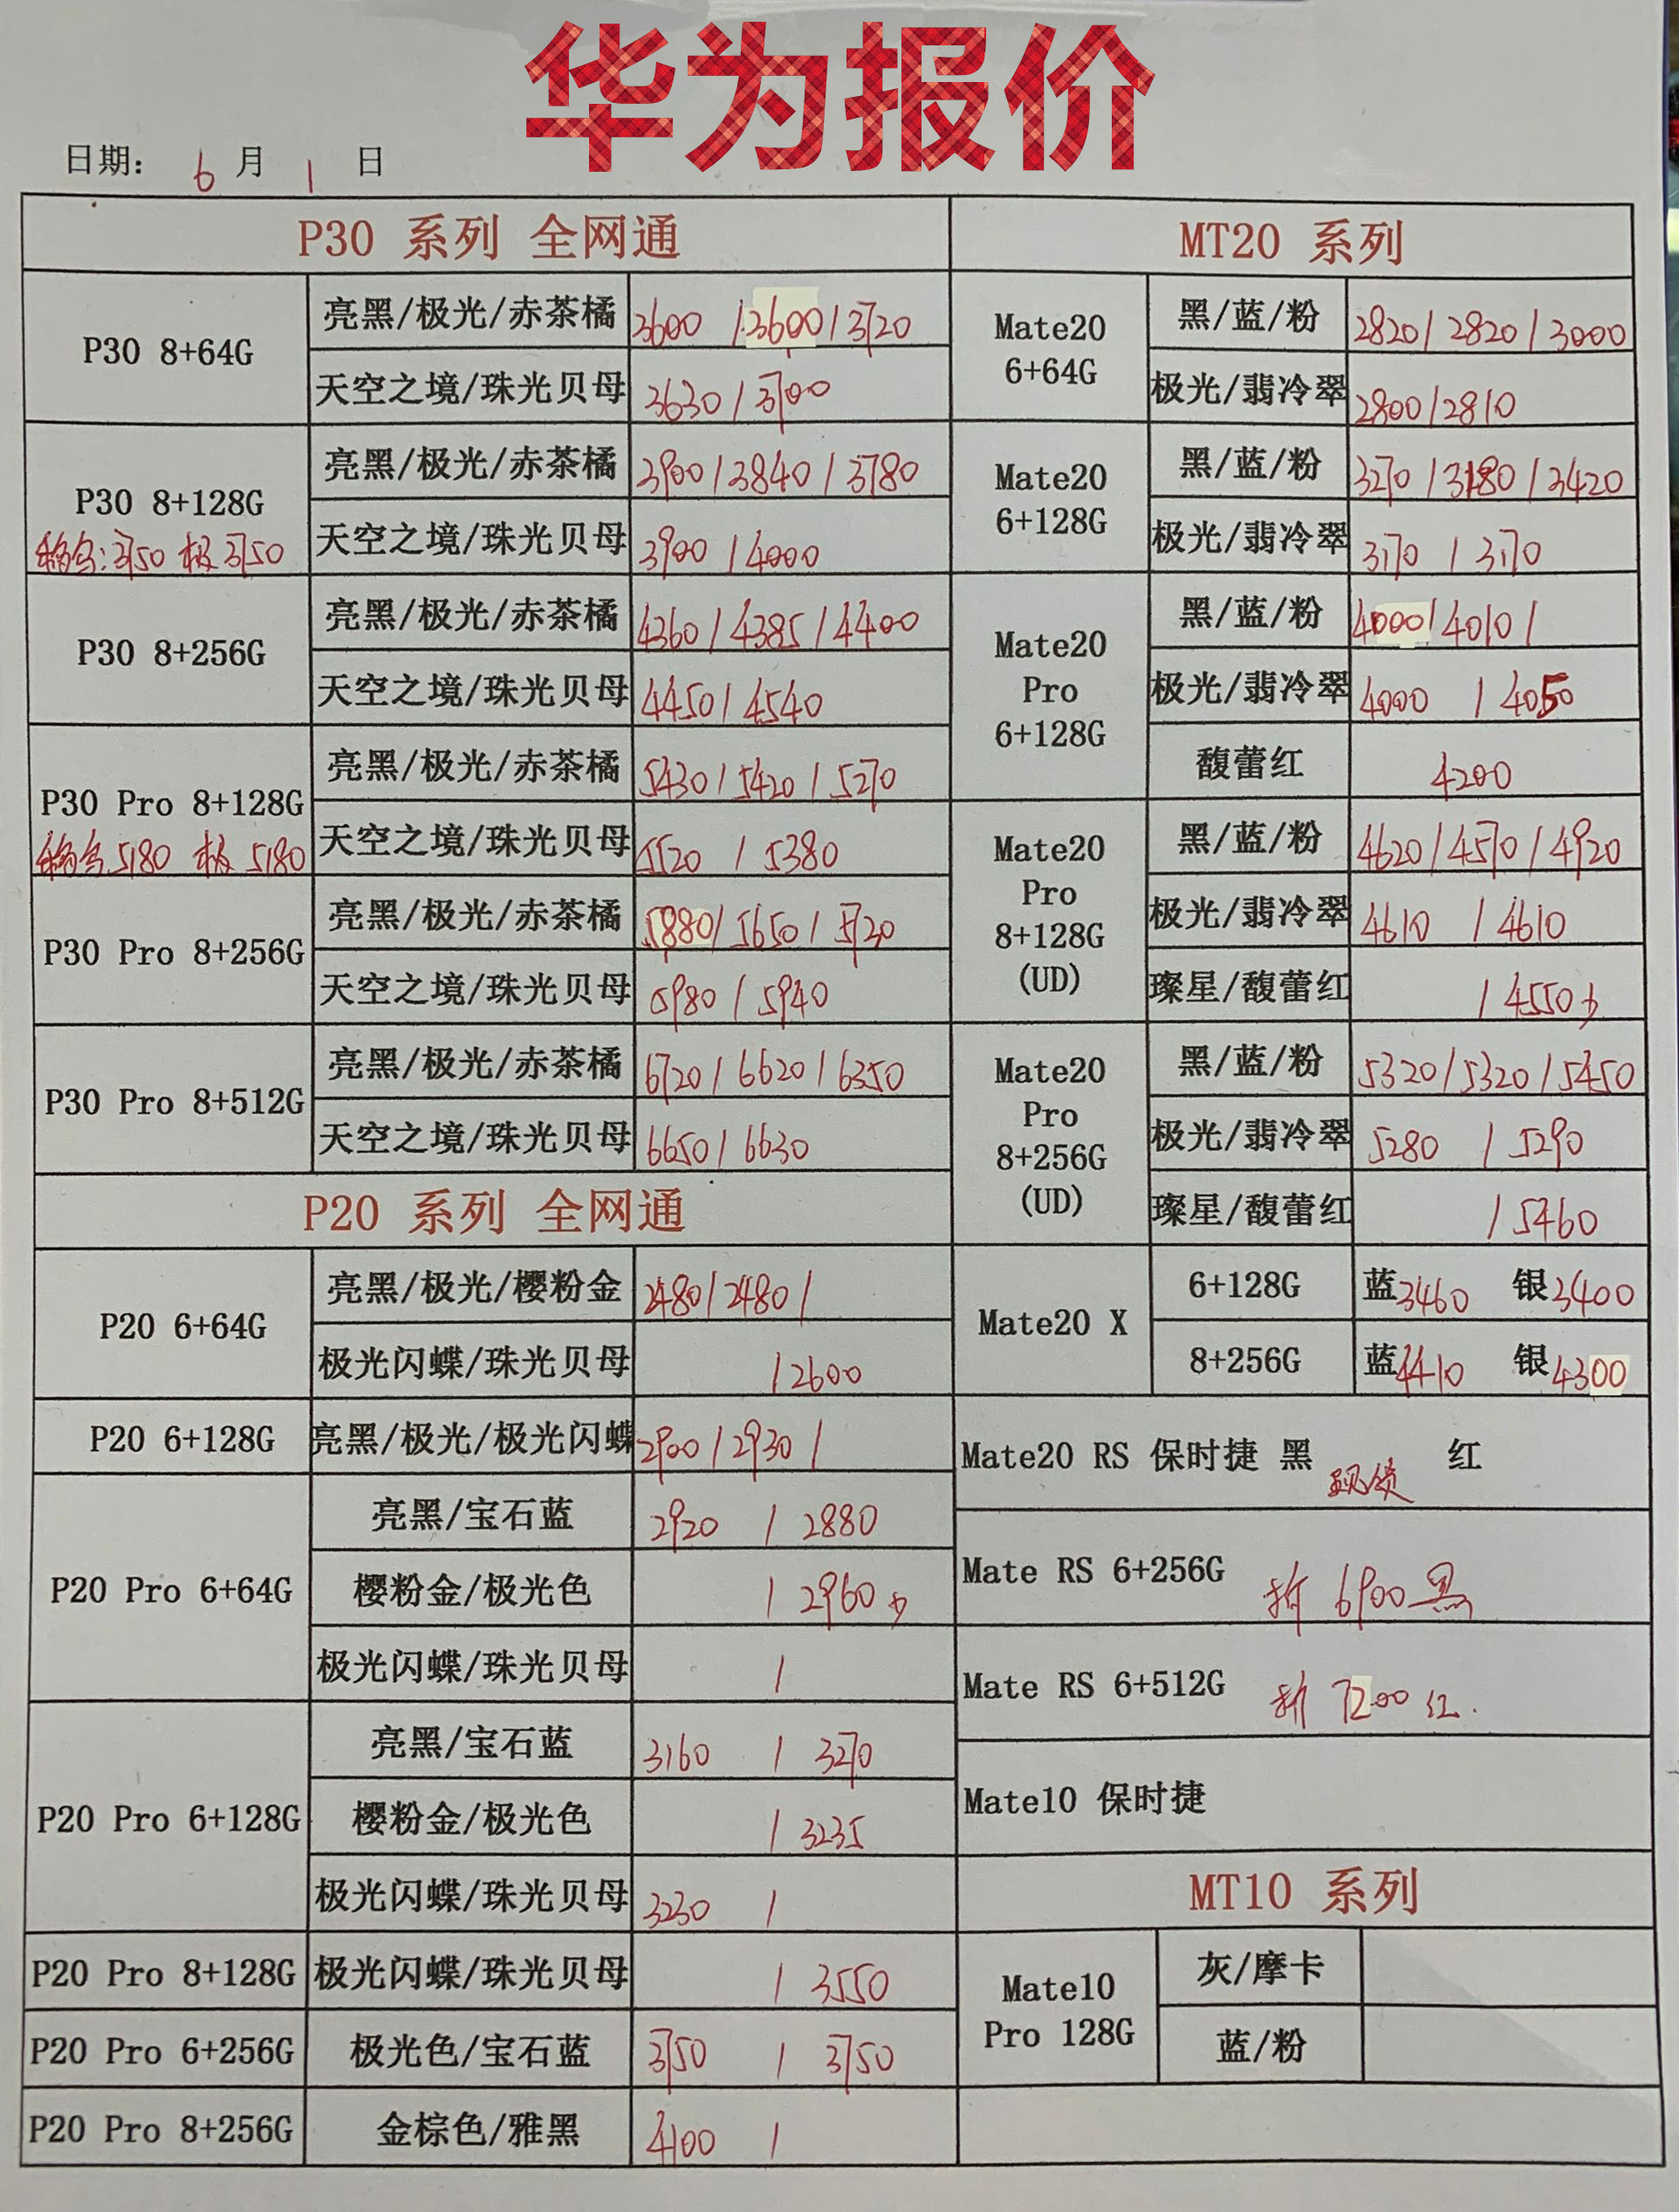 华为报价
日期： 6 月 1 日
P30 系列 全网通
P30 8+64G
亮黑/极光/赤茶橘 3600 /3600/3720
天空之境/珠光贝母 3630/3700
P30 8+128G
3750 极 3750
亮黑/极光/赤茶橘 3900/3840/3780
天空之境/珠光贝母 3900/4000
P30 8+256G
亮黑/极光/赤茶橘 4360/4385/4400
天空之境/珠光贝母 4450/4540
P30 Pro 8+128G
5180 极 5180
亮黑/极光/赤茶橘 5430/5420/5270
天空之境/珠光贝母 5520 / 5380
P30 Pro 8+256G
亮黑/极光/赤茶橘 5880/5650/5720
天空之境/珠光贝母 5980/5940
P30 Pro 8+512G
亮黑/极光/赤茶橘 6720/6620/6350
天空之境/珠光贝母 6650/6630
P20 系列 全网通
P20 6+64G
亮黑/极光/樱粉金 2480/2480/
极光闪蝶/珠光贝母 /2600
P20 6+128G
亮黑/极光/极光闪蝶 2900/2930/
P20 Pro 6+64G
亮黑/宝石蓝 2920 / 2880
樱粉金/极光色 / 2960
极光闪蝶/珠光贝母 /
P20 Pro 6+128G
亮黑/宝石蓝 3160 / 3270
樱粉金/极光色 / 3235
极光闪蝶/珠光贝母 3230 /
P20 Pro 8+128G 极光闪蝶/珠光贝母 / 3550
P20 Pro 6+256G 极光色/宝石蓝 3750 / 3750
P20 Pro 8+256G 金棕色/雅黑 4100 /
MT20 系列
Mate20
6+64G
黑/蓝/粉 2820/2820/3000
极光/翡冷翠 2800/2810
Mate20
6+128G
黑/蓝/粉 3270/3180/3420
极光/翡冷翠 3170 / 3170
Mate20
Pro
6+128G
黑/蓝/粉 4000/4010/
极光/翡冷翠 4000 / 4050
馥蕾红 4200
Mate20
Pro
8+128G
(UD)
黑/蓝/粉 4620/4570/4920
极光/翡冷翠 4610 / 4610
璨星/馥蕾红 / 4550
Mate20
Pro
8+256G
(UD)
黑/蓝/粉 5320/5320/5450
极光/翡冷翠 5280 / 5290
璨星/馥蕾红 / 5460
Mate20 X
6+128G 蓝3460 银3400
8+256G 蓝4410 银4300
Mate20 RS 保时捷 黑 红
Mate RS 6+256G 拆 6900黑
Mate RS 6+512G 拆 7200 红.
Mate10 保时捷
MT10 系列
Mate10
Pro 128G
灰/摩卡
蓝/粉